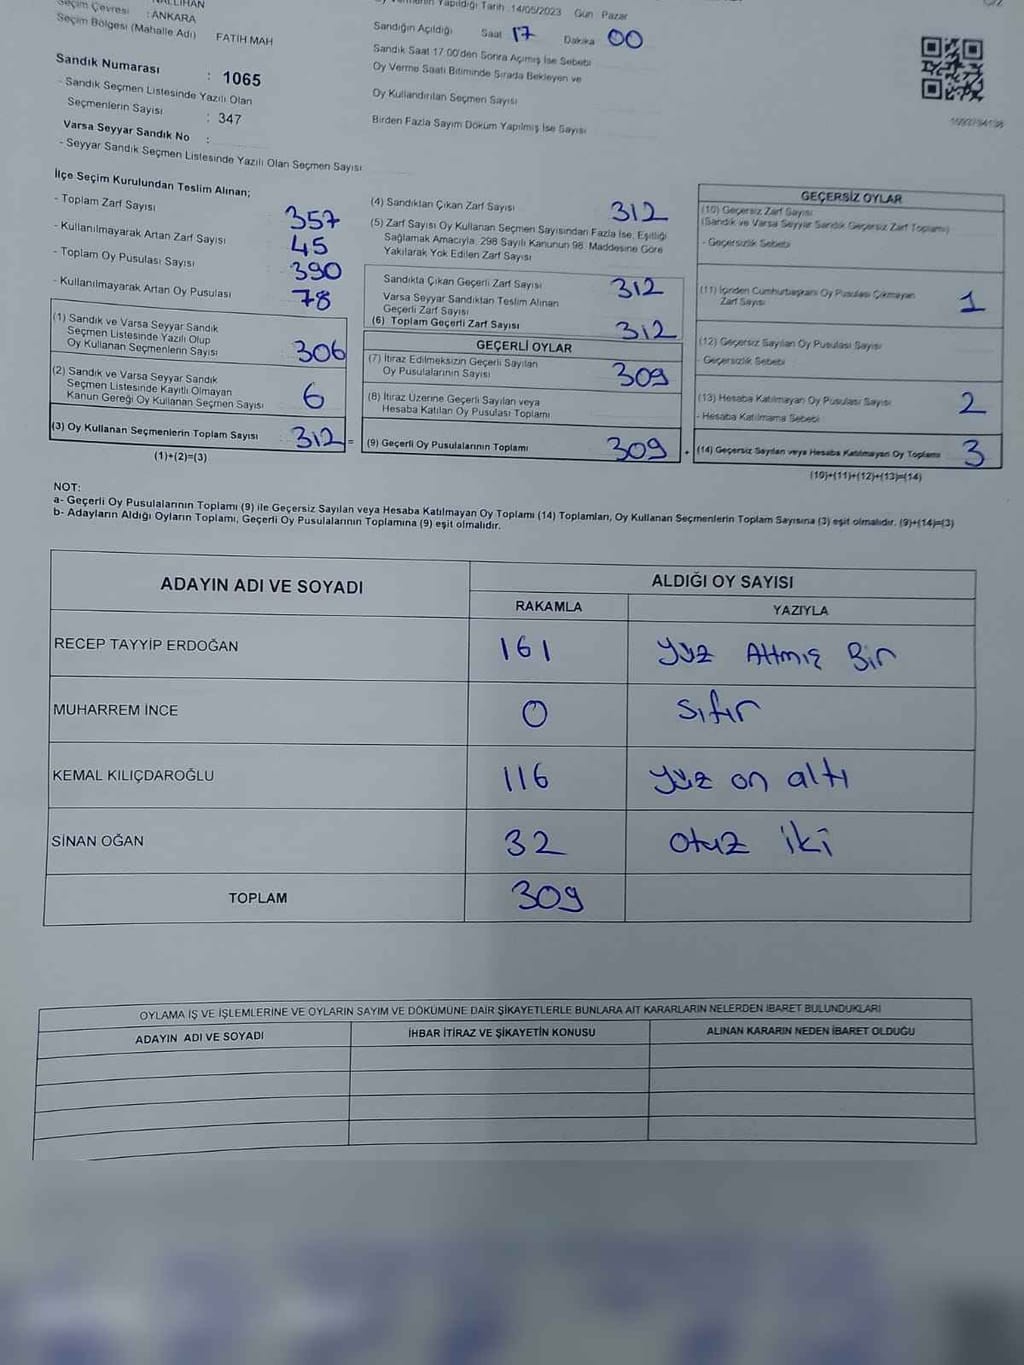 NALLIHAN
Seçim Çevresi : ANKARA
Seçim Bölgesi (Mahalle Adı) FATİH MAH
Sandık Numarası : 1065
- Sandık Seçmen Listesinde Yazılı Olan
Seçmenlerin Sayısı : 347
Varsa Seyyar Sandık No :
- Seyyar Sandık Seçmen Listesinde Yazılı Olan Seçmen Sayısı
Yapıldığı Tarih : 14/05/2023 Gün : Pazar
Sandığın Açıldığı Saat 17 Dakika 00
Sandık Saat 17:00'den Sonra Açımış İse Sebebi
Oy Verme Saati Bitiminde Sırada Bekleyen ve
Oy Kullandırılan Seçmen Sayısı
Birden Fazla Sayım Döküm Yapılmış İse Sayısı
İlçe Seçim Kurulundan Teslim Alınan;
- Toplam Zarf Sayısı 357
- Kullanılmayarak Artan Zarf Sayısı 45
- Toplam Oy Pusulası Sayısı 390
- Kullanılmayarak Artan Oy Pusulası 78
(1) Sandık ve Varsa Seyyar Sandık
Seçmen Listesinde Yazılı Olup
Oy Kullanan Seçmenlerin Sayısı 306
(2) Sandık ve Varsa Seyyar Sandık
Seçmen Listesinde Kayıtlı Olmayan
Kanun Gereği Oy Kullanan Seçmen Sayısı 6
(3) Oy Kullanan Seçmenlerin Toplam Sayısı 312 =
(1)+(2)=(3)
(4) Sandıktan Çıkan Zarf Sayısı 312
(5) Zarf Sayısı Oy Kullanan Seçmen Sayısından Fazla İse, Eşitliği
Sağlamak Amacıyla, 298 Sayılı Kanunun 98. Maddesine Göre
Yakılarak Yok Edilen Zarf Sayısı
Sandıkta Çıkan Geçerli Zarf Sayısı 312
Varsa Seyyar Sandıktan Teslim Alınan
Geçerli Zarf Sayısı
(6) Toplam Geçerli Zarf Sayısı 312
GEÇERLİ OYLAR
(7) İtiraz Edilmeksizin Geçerli Sayılan
Oy Pusulalarının Sayısı 309
(8) İtiraz Üzerine Geçerli Sayılan veya
Hesaba Katılan Oy Pusulası Toplamı
(9) Geçerli Oy Pusulalarının Toplamı 309 +
GEÇERSİZ OYLAR
(10) Geçersiz Zarf Sayısı
(Sandık ve Varsa Seyyar Sandık Geçersiz Zarf Toplamı)
- Geçersizlik Sebebi
(11) İçinden Cumhurbaşkanı Oy Pusulası Çıkmayan
Zarf Sayısı 1
(12) Geçersiz Sayılan Oy Pusulası Sayısı
- Geçersizlik Sebebi
(13) Hesaba Katılmayan Oy Pusulası Sayısı 2
- Hesaba Katılmama Sebebi
(14) Geçersiz Sayılan veya Hesaba Katılmayan Oy Toplamı 3
(10)+(11)+(12)+(13)=(14)
NOT:
a- Geçerli Oy Pusulalarının Toplamı (9) ile Geçersiz Sayılan veya Hesaba Katılmayan Oy Toplamı (14) Toplamları, Oy Kullanan Seçmenlerin Toplam Sayısına (3) eşit olmalıdır. (9)+(14)=(3)
b- Adayların Aldığı Oyların Toplamı, Geçerli Oy Pusulalarının Toplamına (9) eşit olmalıdır.
ADAYIN ADI VE SOYADI ALDIĞI OY SAYISI
RAKAMLA YAZIYLA
RECEP TAYYİP ERDOĞAN 161 Yüz Altmış Bir
MUHARREM İNCE 0 Sıfır
KEMAL KILIÇDAROĞLU 116 Yüz on altı
SİNAN OĞAN 32 Otuz iki
TOPLAM 309
OYLAMA İŞ VE İŞLEMLERİNE VE OYLARIN SAYIM VE DÖKÜMÜNE DAİR ŞİKAYETLERLE BUNLARA AİT KARARLARIN NELERDEN İBARET BULUNDUKLARI
ADAYIN ADI VE SOYADI İHBAR İTİRAZ VE ŞİKAYETİN KONUSU ALINAN KARARIN NEDEN İBARET OLDUĞU